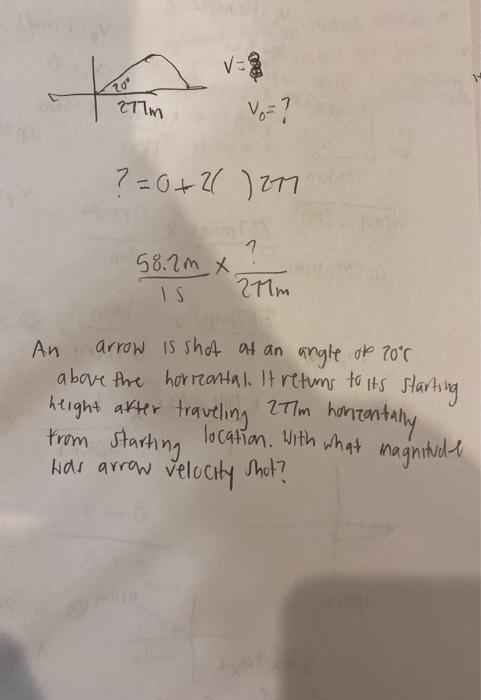 V=
20°
277m
V₀=?
?=0+2( )277
58.2m × ?
1s 277m
An arrow is shot at an angle of 20°C
above the horizontal. It returns to its starting
height after traveling 277m horizontally
from starting location. With what magnitude
was arrow velocity shot?